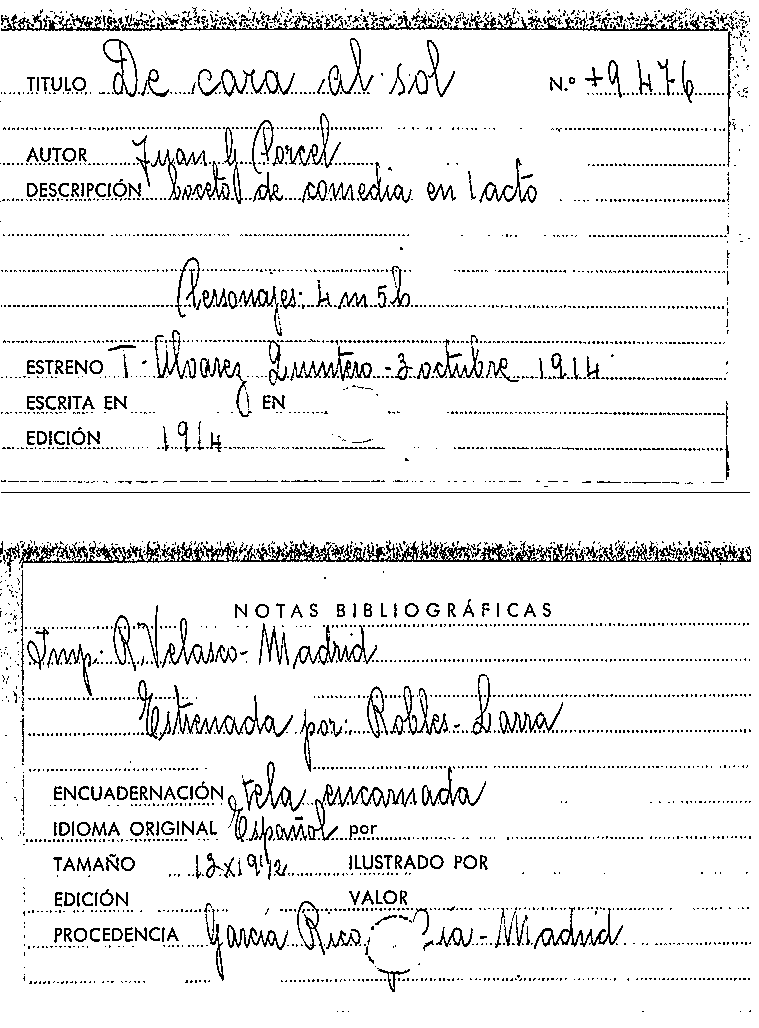 TITULO De cara al sol N.º +9 476
AUTOR Juan G Porcel
DESCRIPCIÓN boceto de comedia en 1 acto
Personajes: 4 m 5 h
ESTRENO T. Alvarez Quintero - 3 octubre 1914
ESCRITA EN EN
EDICIÓN 1914
NOTAS BIBLIOGRÁFICAS
Imp. R. Velasco - Madrid
Estrenada por: Robles - Larra
ENCUADERNACIÓN tela encarnada
IDIOMA ORIGINAL Español por
TAMAÑO 13x19 1/2 ILUSTRADO POR
EDICIÓN VALOR
PROCEDENCIA García Rico - Madrid